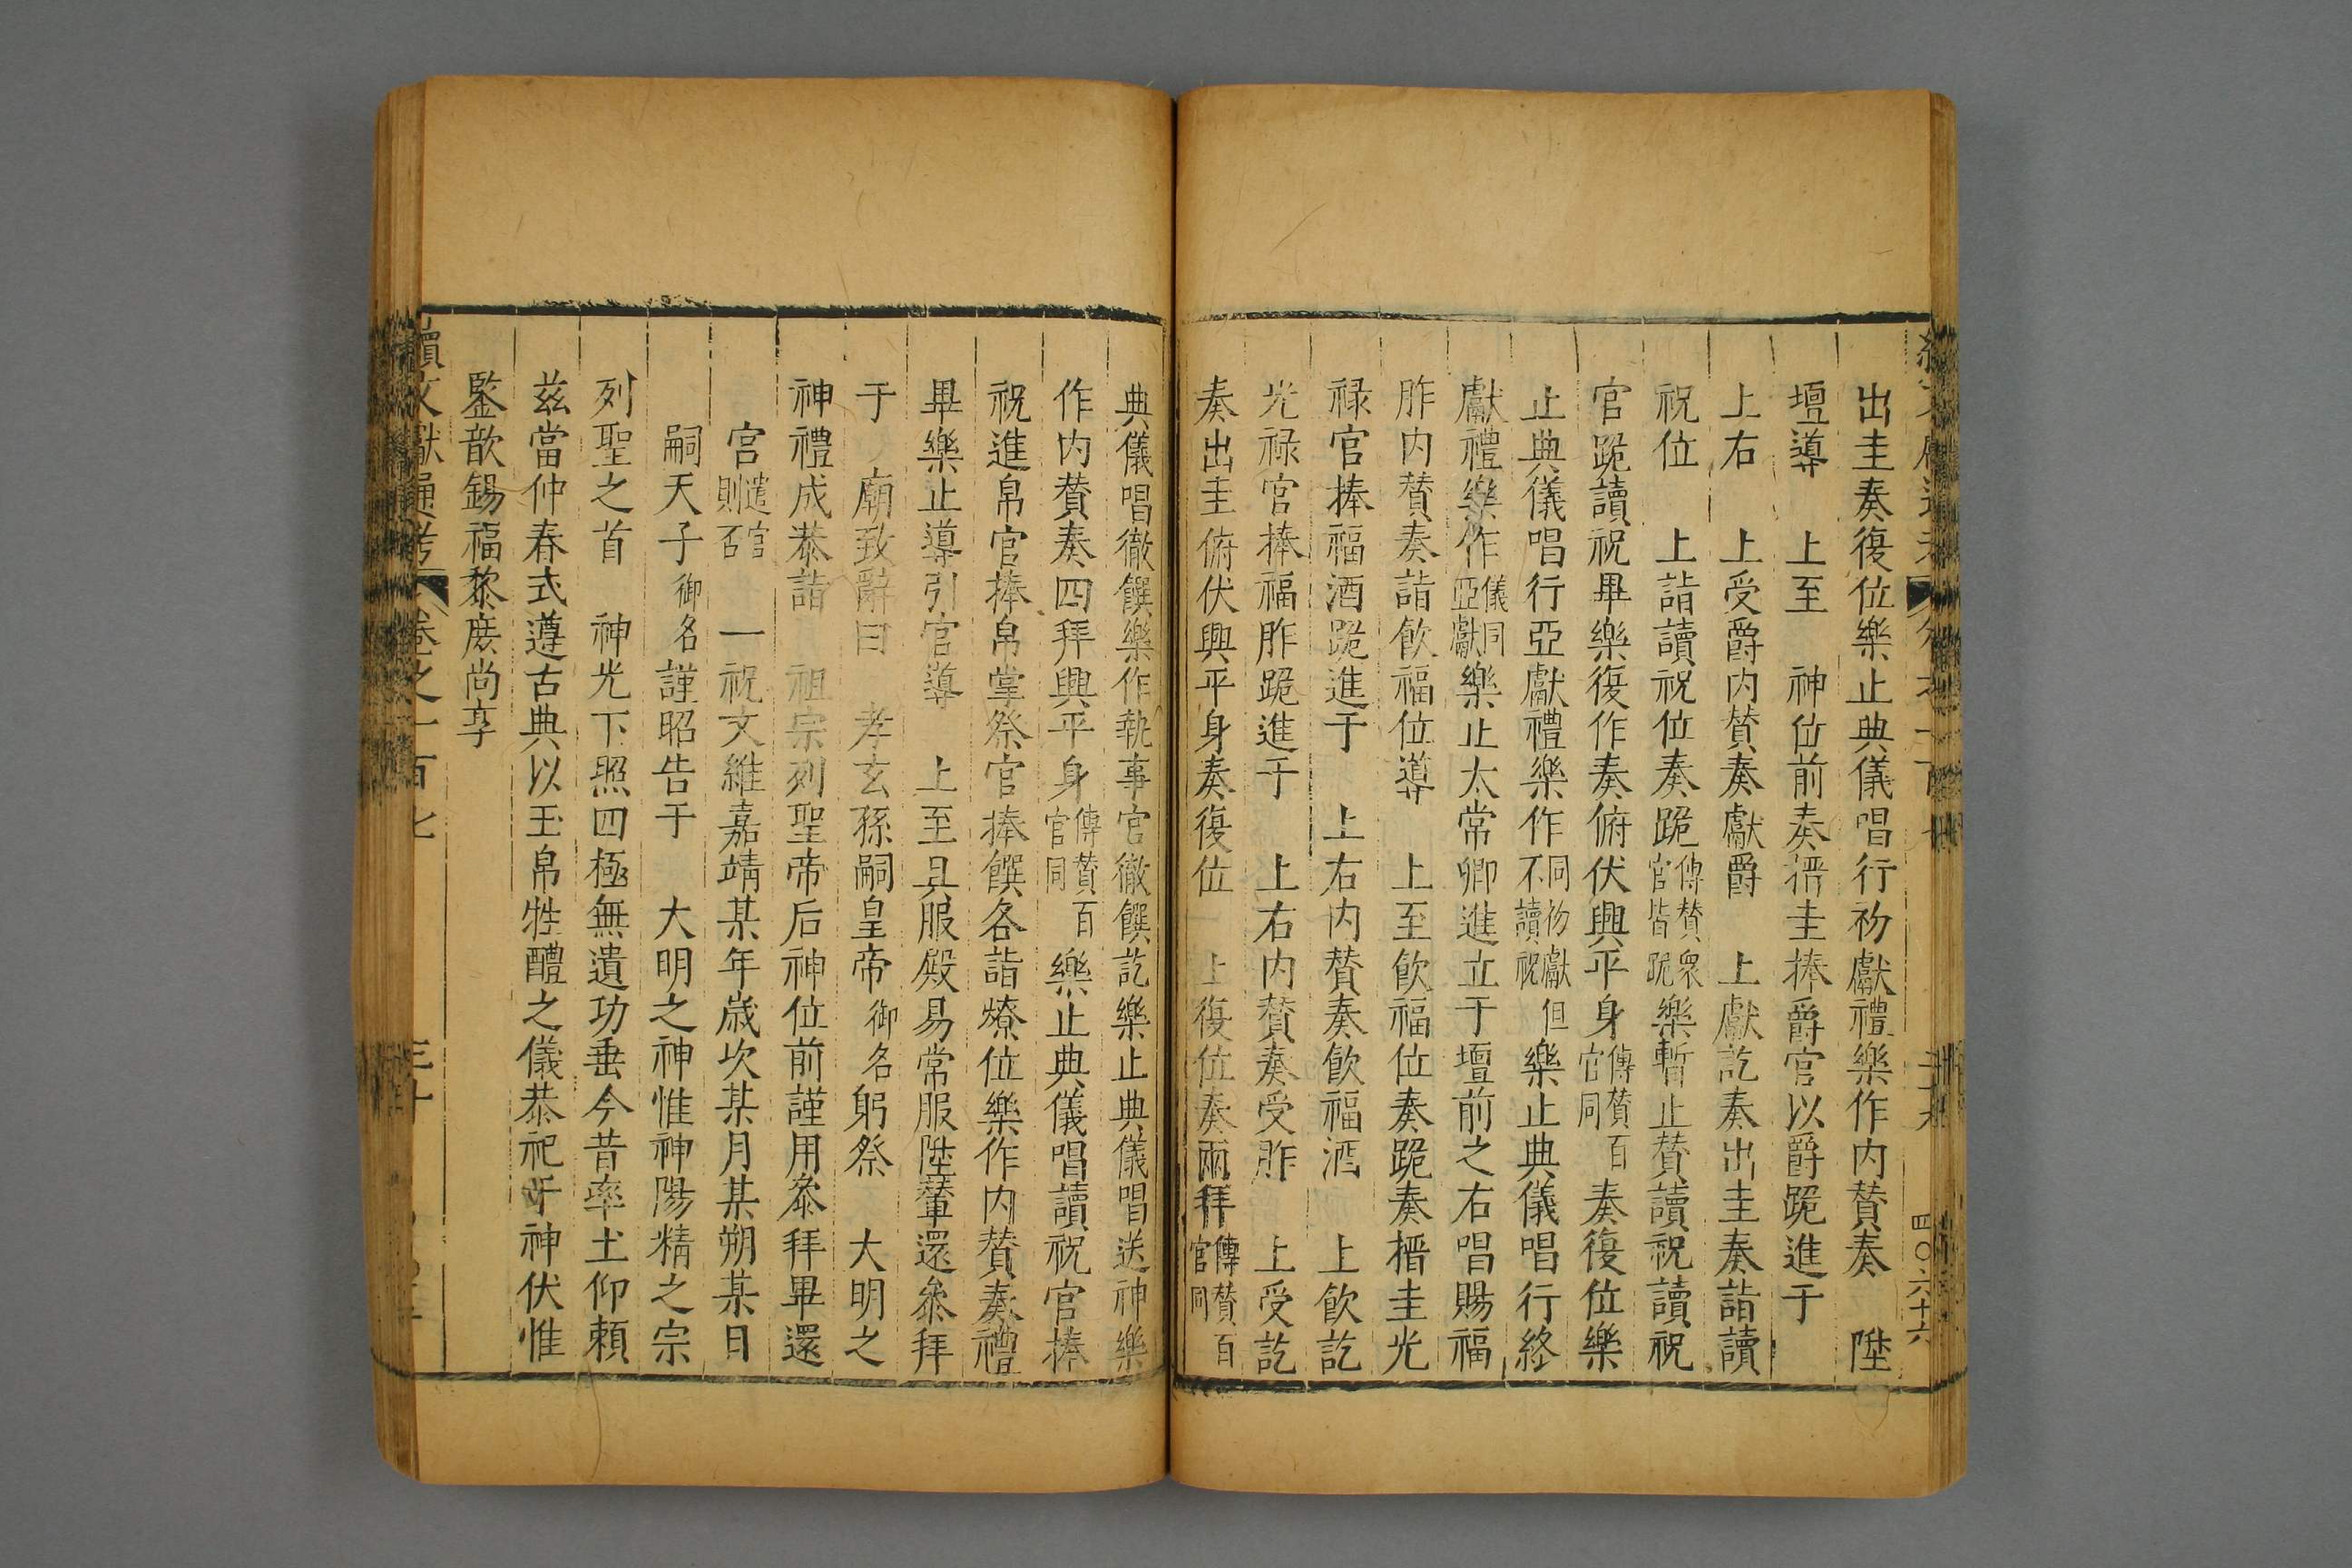 出圭奏復位樂止典儀唱行初獻禮樂作内賛奏　陞
壇導　上至　神位前奏搢圭捧爵官以爵跪進于
上右　上受爵内賛奏獻爵　上獻訖奏出圭奏詣讀
祝位　上詣讀祝位奏跪傳賛衆官皆跪樂暫止賛讀祝讀祝
官跪讀祝畢樂復作奏俯伏興平身傳賛百官同奏復位樂
止典儀唱行亞獻禮樂作同初獻但不讀祝樂止典儀唱行終
獻禮樂作儀同亞獻樂止太常卿進立于壇前之右唱賜福
胙内賛奏詣飲福位導　上至飲福位奏跪奏搢圭光
禄官捧福酒跪進于　上右内賛奏飲福酒　上飲訖
光禄官捧福胙跪進于　上右内賛奏受胙　上受訖
奏出圭俯伏興平身奏復位　上復位奏兩拜傳賛百官同
四〇六十六
典儀唱徹饌樂作執事官徹饌訖樂止典儀唱送神樂
作内賛奏四拜興平身傳賛百官同樂止典儀唱讀祝官捧
祝進帛官捧帛掌祭官捧饌各詣燎位樂作内賛奏禮
畢樂止導引官導　上至具服殿易常服陞輦還叅拜
于　廟致辭曰　孝玄孫嗣皇帝御名躬祭　大明之
神禮成恭詣　祖宗列聖帝后神位前謹用叅拜畢還
宮遣官則否　一祝文維嘉靖某年歲次某月某朔某日
嗣天子御名謹昭告于　大明之神惟神陽精之宗
列聖之首　神光下照四極無遺功垂今昔率土仰賴
兹當仲春式遵古典以玉帛牲醴之儀恭祀于神伏惟
鑒歆錫福黎庶尚享
續文獻通考　卷之一百七